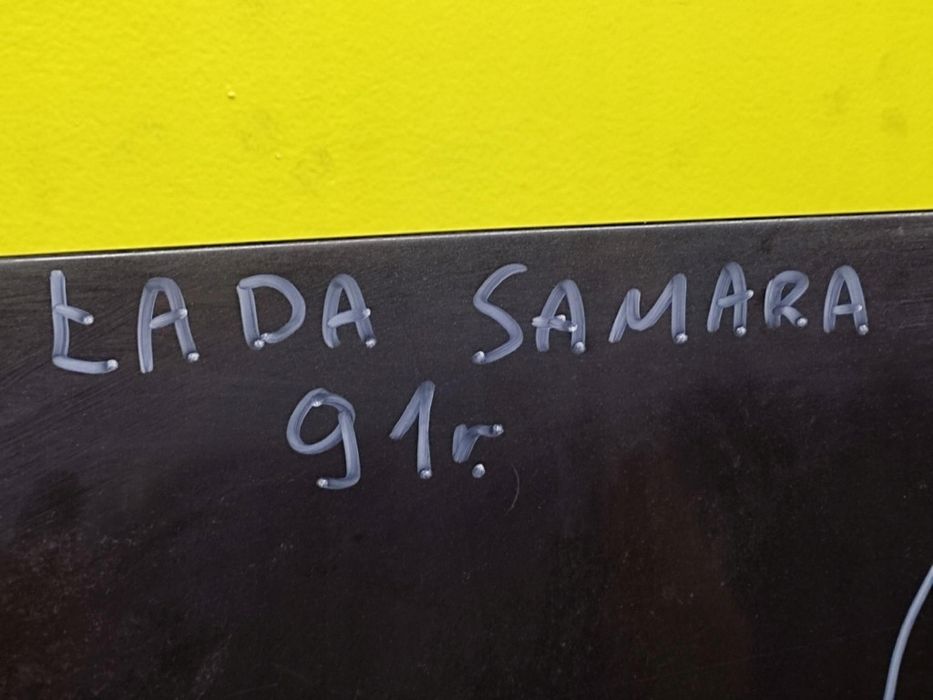 ŁADA SAMARA
91r.